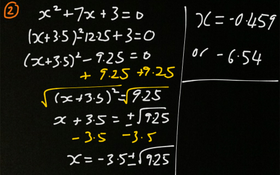 2
x² + 7x + 3 = 0
(x+3.5)² 12.25 + 3 = 0
(x+3.5)² - 9.25 = 0
+ 9.25 +9.25
√(x+3.5)² = √9.25
x + 3.5 = ±√9.25
-3.5 -3.5
x = -3.5 ± √9.25
x = -0.459
or -6.54